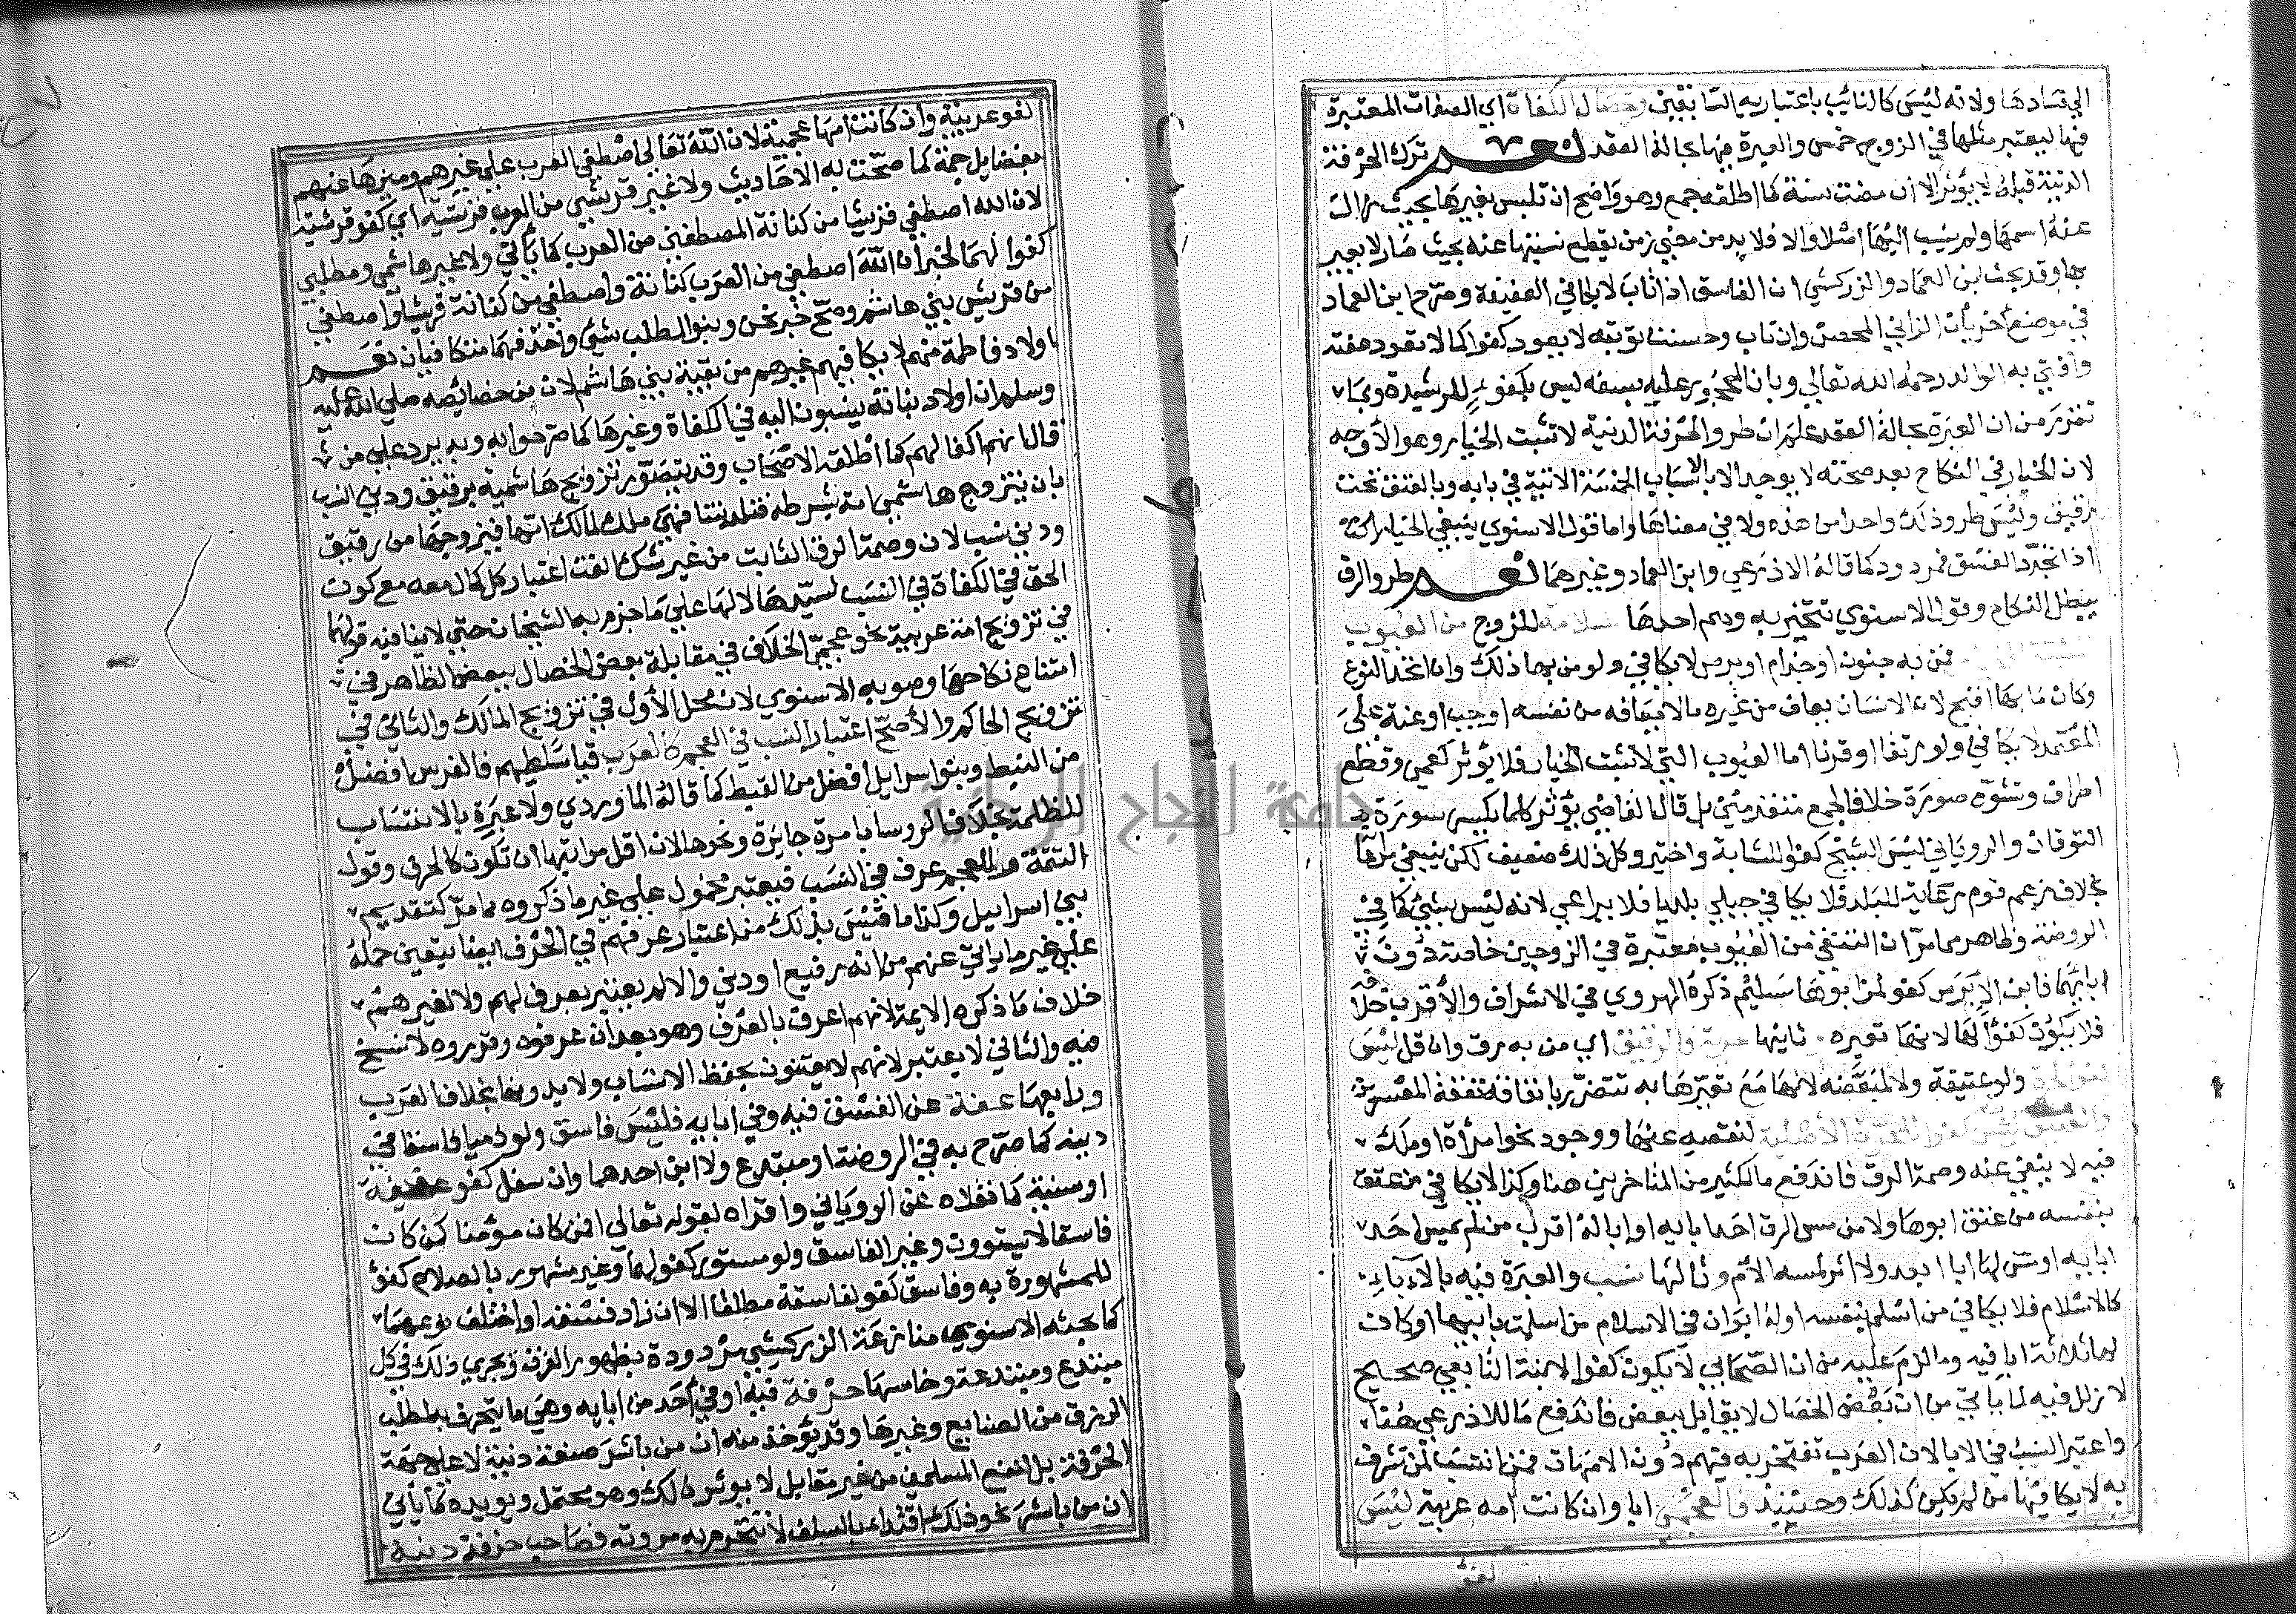 الي تضادها ولانه ليس كالنائب باعتباريه السابقين وخصال الكفاة اي الصفات المعتبرة
فيها ليعتبر مثلها في الزوج خمس والعبرة فيها بحالة العقد نعم ترك الحرفة
الدنية قبله لا يؤثر الا ان مضت سنة كما اطلقه جمع وهو واضح ان تلبس بغيرها بحيث زالت
عنه اسمها ولم ينسب اليها اصلا والا فلا بد من مضي زمن يقطع نسبتها عنه بحيث صار لا يعير
بها وقد بحث ابن العماد والزركشي ان الفاسق اذا تاب لا يكافي العفيفة وصرح ابن العماد
في موضع اخر بان الزاني المحصن وان تاب وحسنت توبته لا يعود كفوا كما لا تعود عفته
وافتي به الوالد رحمه الله تعالي وبان المحجور عليه بسفه ليس بكفوء للرشيدة وبما
تقرر من ان العبرة بحالة العقد علم ان طرو الحرفة الدنية لا تثبت الخيار وهو الاوجه
لان الخيار في النكاح بعد صحته لا يوجد الا بالاسباب الخمسة الاتية في بابه وبالعتق تحت
رقيق وليس طرو ذلك واحدا من هذه ولا في معناها واما قول الاسنوي ينبغي الخيار
اذا تجدد الفسق فمردود كما قاله الاذرعي وابن العماد وغيرهما نعم طرو الرق
يبطل النكاح وقول الاسنوي تتخير به وهم احدها سلامة للزوج من العيوب
فمن به جنون او جذام او برص لا يكافي ولو من بها ذلك وان اتحد النوع
وكان ما بها اقبح لان الانسان يعاف من غيره ما لا يعافه من نفسه او جب او عنة علي
المعتمد لا يكافي ولو رتقا او قرنا اما العيوب التي لا تثبت الخيار فلا يؤثر كعمي وقطع
اطراف وتشوه صورة خلافا لجمع متقدمين بل قال القاضي يؤثر كلما يكسر سورة
التوقان والروياني ليس الشيخ كفوا للشابة واختير وكل ذلك ضعيف لكن ينبغي مراعاتها
بخلاف زعم قوم رعاية البلد فلا يكافي جبلي بلديا فلا يراعي لانه ليس بشيء كما في
الروضة وظاهر مما مر ان التنقي من العيوب معتبرة في الزوجين خاصة دون
ابائهما فابن الابرص كفو لمن ابوها سليم ذكره الهروي في الاشراف والاقرب خلافه
فلا يكون كفوا لها لانها تعيره ثانيها حرية والرقيق اي من به رق وان قل ليس
كفوا لحرة ولو عتيقة ولا لمبعضة لانها مع تعيرها به تتضرر بانفاقه نفقة المعسرين
والعتيق ليس كفوا لحرة الاصلية لنقصه عنها ووجود نحو امرأة او ملك
فيه لا ينفي عنه وصمة الرق فاندفع ما لكثير من المتاخرين هنا وكذا لا يكافي من عتق
بنفسه من عتق ابوها ولا من مس الرق احد ابايه او ابا له اقرب من لم يمس احد
ابايه او مس لها ابا ابعد ولا اثر لمسه الام وثالثها نسب والعبرة فيه بالاباء
كالاسلام فلا يكافي من اسلم بنفسه او له ابوان في الاسلام من اسلمت بابيها او كان
لها ثلاثة ابا فيه وما لزم عليه من ان الصحابي لا يكون كفوا لابنة التابعي صحيح
لا زلل فيه لما ياتي من ان بعض الخصال لا يقابل ببعض فاندفع ما للاذرعي هنا
واعتبر النسب في الابا لان العرب تفتخر به فيهم دون الامهات فمن انتسب لمن تشرف
به لا يكافيها من لم يكن كذلك وحينئذ فالعجمي ابا وان كانت امه عربية ليس
كفؤ
كفو عربية وان كانت امها عجمية لان الله تعالي اصطفي العرب علي غيرهم وميزها عنهم
بفضايل جمة كما صحت به الاحاديث ولا غير قرشي من العرب قرشية اي كفو قرشية
لان الله اصطفي قريشا من كنانة المصطفين من العرب كما ياتي ولا غير هاشمي ومطلبي
كفوا لهما لخبر ان الله اصطفي من العرب كنانة واصطفي من كنانة قريشا واصطفي
من قريش بني هاشم وصح خبر نحن وبنوا المطلب شئ واحد فهما متكافيان نعم
اولاد فاطمة منهم لا يكافيهم غيرهم من بقية بني هاشم لان من خصائصه صلي الله عليه
وسلم ان اولاد بناته ينسبون اليه في الكفاة وغيرها كما صرحوا به وبه يرد علي من
قال انهم اكفا لهم كما اطلقه الاصحاب وقد يتصور تزويج هاشمية برقيق ودني النسب
بان يتزوج هاشمي امة بشرطه فتلد بنتا فهي ملك لمالك امها فيزوجها من رقيق
ودني نسب لان وصمة الرق الثابت من غير شك الغت اعتبار كل كمال معه مع كون
الحق في الكفاة في النسب لسيدها لا لها علي ما جزم به الشيخان حتي لا ينافيه قولهما
في تزويج امة عربية نحو عجمي الخلاف في مقابلة بعض الخصال ببعض الظاهر في
امتناع نكاحها وصوبه الاسنوي لان محل الاول في تزويج المالك والثاني في
تزويج الحاكم والاصح اعتبار النسب في العجم كالعرب قياسا عليهم فالفرس افضل
من النبط وبنوا اسرايل افضل من القبط كما قاله الماوردي ولا عبرة بالانتساب
للظلمة بخلاف الروسا بامرة جائزة ونحوها لان اقل مراتبها ان تكون كالحرف وقول
التتمة وللعجم عرف في النسب فيعتبر محمول علي غير ما ذكروه مما مر كتقديم
بني اسرايل وكذا ما قيس بذلك من اعتبار عرفهم في الحرف ايضا يتعين حمله
علي غير ما ياتي عنهم من انه رفيع او دني والا لم يعتبر بعرف لهم ولا لغيرهم
خلاف ما ذكره الايمة لانهم اعرف بالعرف وهو بعد ان عرفوه وقرروه لا نسخ
فيه والثاني لا يعتبر لانهم لا يعتنون بحفظ الانساب ولا يدونها بخلاف العرب
ورابعها عفة عن الفسق فيه وفي ابايه فليس فاسق ولو ذميا فاسقا في
دينه كما صرح به في الروضة او مبتدع ولا ابن احدهما وان سفل كفو عفيفة
او سنية كما نقلاه عن الروياني واقراه لقوله تعالي افمن كان مؤمنا كمن كان
فاسقا لا يستوون وغير الفاسق ولو مستور كفو لها وغير مشهور بالصلاح كفؤ
للمشهورة به وفاسق كفو لفاسقة مطلقا الا ان زاد فسقه او اختلف نوعهما
كما بحثه الاسنوي منازعة الزركشي مردودة بظهور الفرق ويجري ذلك في كل
مبتدع ومبتدعة وخامسها حرفة فيه او في احد من ابايه وهي ما يتحرف به لطلب
الرزق من الصنايع وغيرها وقد يؤخذ منه ان من باشر صنعة دنية لا علي جهة
الحرفة بل لنفع المسلمين من غير مقابل لا يوثر ذلك وهو محتمل ويويده ما ياتي
ان من باشر نحو ذلك اقتداء بالسلف لا تنخرم به مروته فصاحب حرفة دنية
جامعة النجاح الوطنية